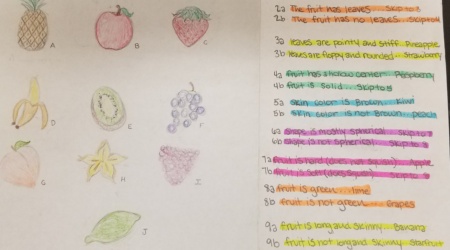 A
B
C
D
E
F
G
H
I
J
2a The fruit has leaves... skip to 3
2b The fruit has no leaves... skip to 4
3a leaves are pointy and stiff... Pineapple
3b leaves are floppy and rounded... Strawberry
4a fruit has a hollow center... Raspberry
4b fruit is solid... skip to 5
5a skin color is Brown... kiwi
5b skin color is not Brown... peach
6a shape is mostly spherical... skip to
6b shape is not spherical... skip to
7a fruit is hard (does not squish)... Apple
7b fruit is soft (does squish)... skip to
8a fruit is green... lime
8b fruit is not green... Grapes
9a fruit is long and skinny... Banana
9b fruit is not long and skinny... Starfruit